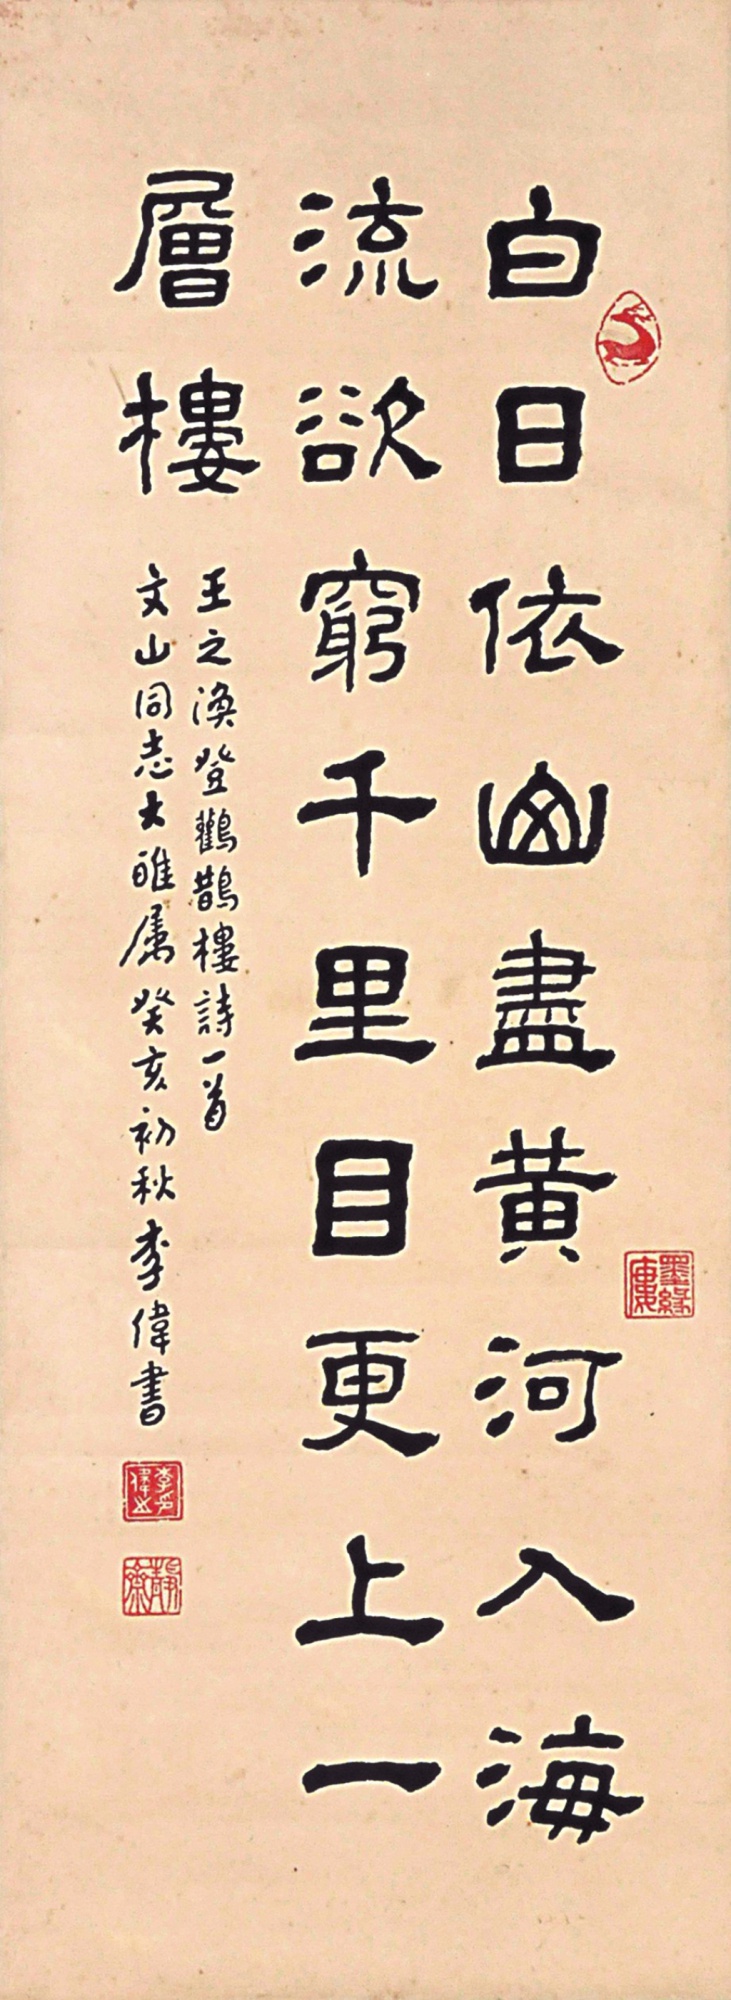 白日依山盡黄河入海
流欲窮千里目更上一
層樓
王之渙登鸛鵲樓詩一首
文山同志大雅属癸亥初秋李偉書
墨緣
李偉之印
靜齋